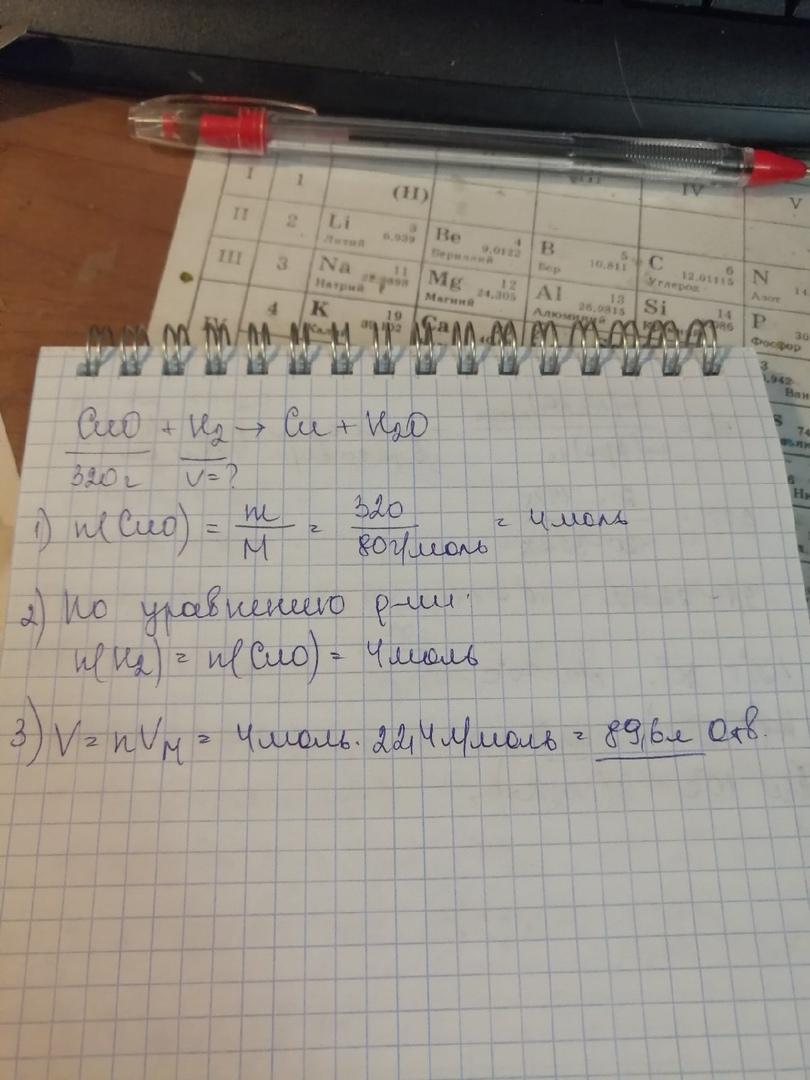 I 1 (H) IV V
II 2 Li 3 Литий 6,939 Be 4 Бериллий 9,0122 B 5 Бор 10,811 C 6 Углерод 12,01115 N Азот 14
III 3 Na 11 Натрий Mg 12 Магний 24,305 Al 13 Алюминий 26,9815 Si 14 P Фосфор 30
IV 4 K 19 Ca
CuO + H₂ → Cu + H₂O
320г V=?
1) n(CuO) = m/M = 320/80г/моль = 4моль
2) По уравнению р-ии:
n(H₂) = n(CuO) = 4моль
3) V = nVм = 4моль · 22,4л/моль = 89,6л Отв.